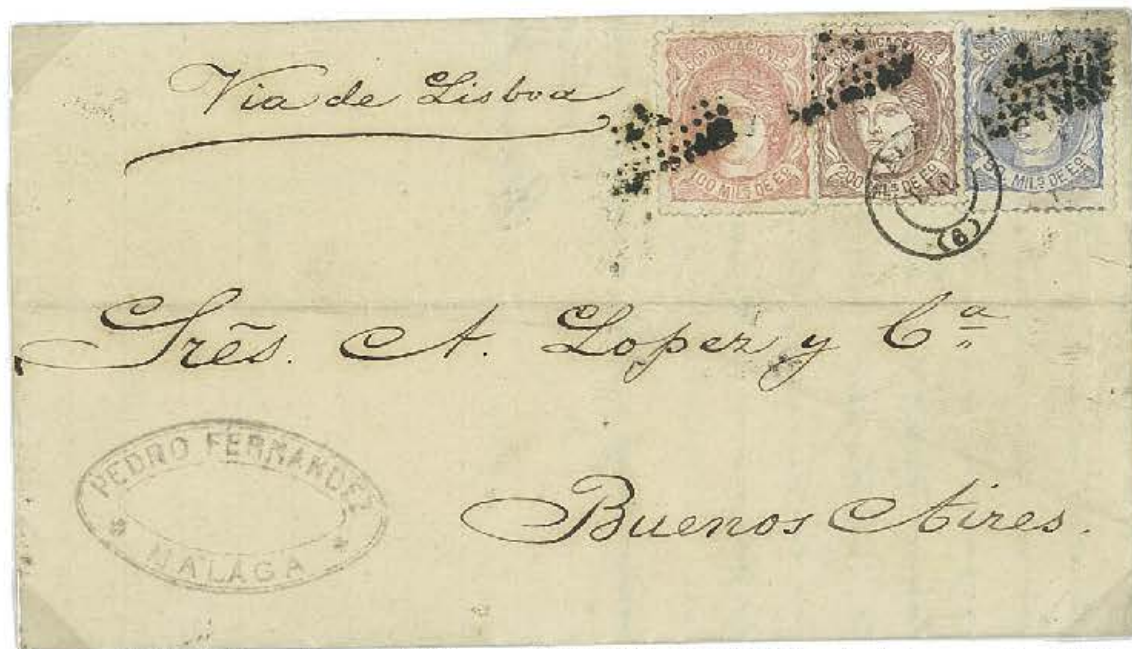 Via de Lisboa
COMUNICACIONES
100 MILS DE EO
COMUNICACIONES
200 MILS DE EO
COMUNICACIONES
MILS DE EO
(6)
Srẽs. A. Lopez y Cª
Buenos Aires.
PEDRO FERNANDEZ
MALAGA